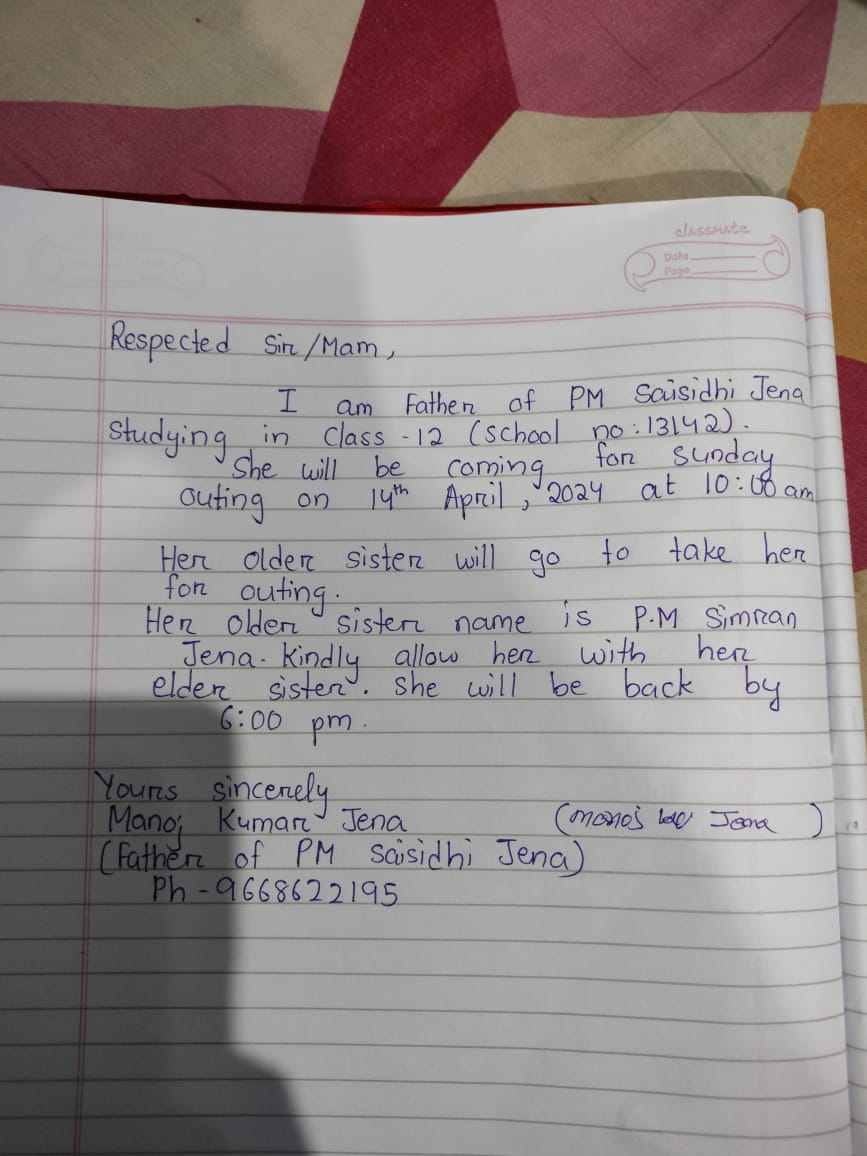 classmate
Date
Page
Respected Sir/Mam,
I am Father of PM Saisidhi Jena
Studying in Class -12 (School no:13142).
She will be coming for Sunday
outing on 14th April, 2024 at 10:00 am
Her older sister will go to take her
for outing.
Her older sister name is P.M Simran
Jena. Kindly allow her with her
elder sister. She will be back by
6:00 pm.
Yours sincerely
Manoj Kumar Jena (Manoj Jena)
(Father of PM Saisidhi Jena)
Ph - 9668622195